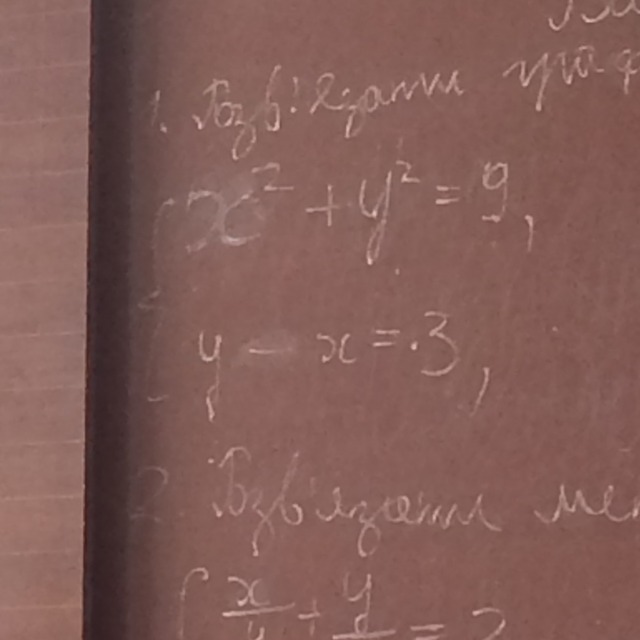 1. Розв'язати граф
x² + y² = 9,
y - x = 3,
2. Розв'язати ме
x/4 + y/ = 2